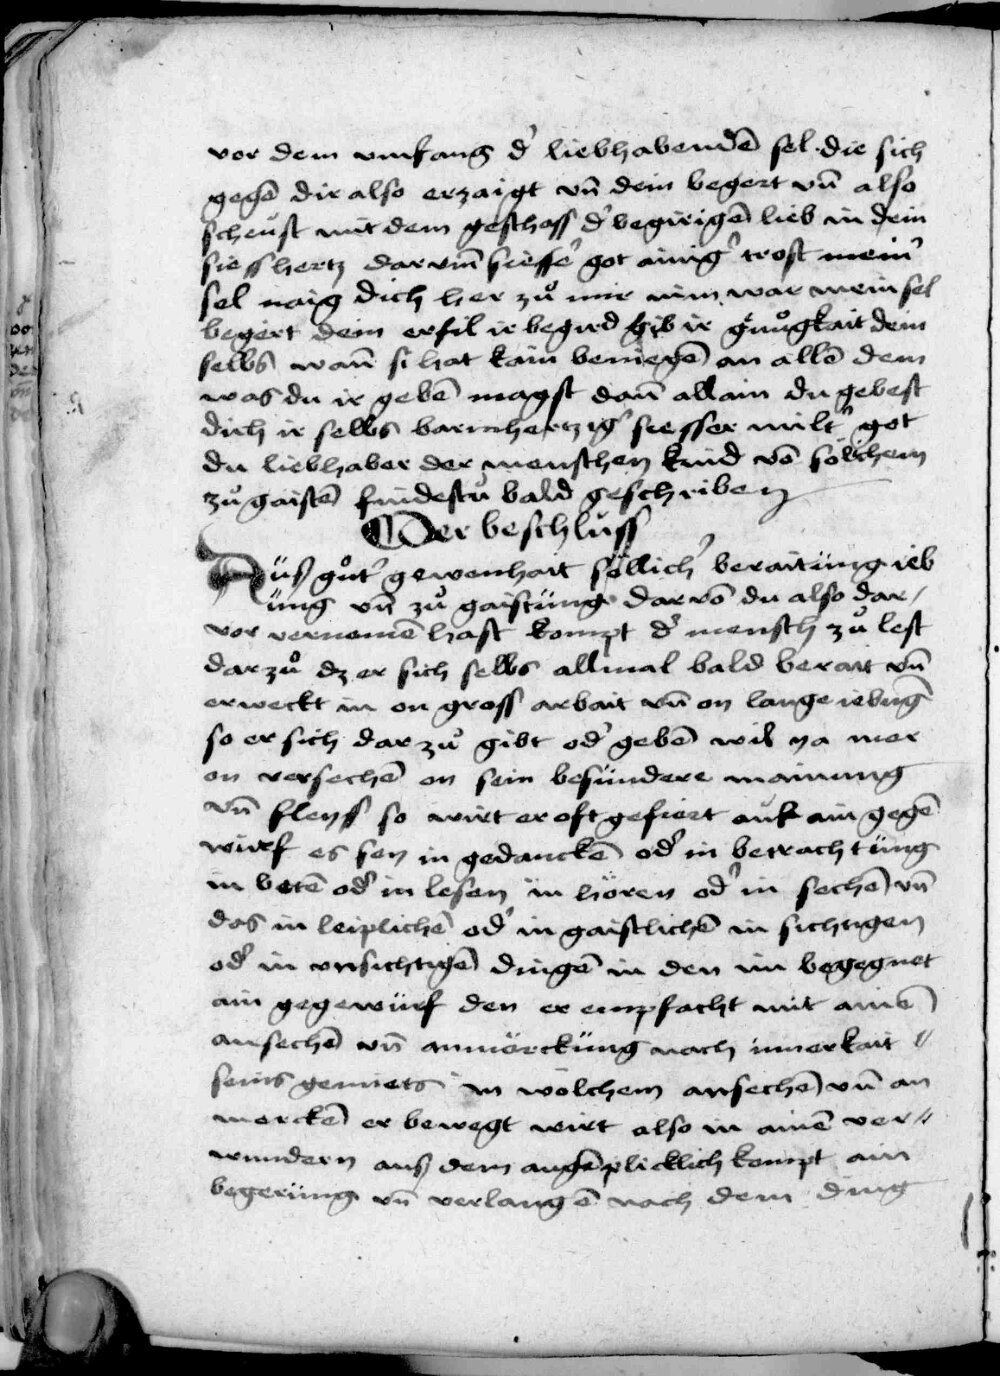 vor dem umfang d' liebhabendē sel die sich
gegē dir also erzaigt vn̄ dein begert vn̄ also
scheust mit dem geschoss d' begirigē lieb in dein
siess hertz darvm̄ siesse' got ainig' trost mein'
sel naig dich her zů mir nim war mein sel
begert dein erfil ir begird gib ir gnůgkait dein
selbs wan̄ si hat kain beniegē an allē dem
was du ir gebē magst dan̄ allain du gebest
dich ir selbs barmhertzig' siesser milt' got
du liebhaber der menschen kind vō sölichem
zů gaistē findestu bald geschriben
Der beschluss
Aüß gůt' gewonhait söllich' beraitüng ieb
üng vn̄ zů gaistüng darvō du also dar/
vor vernomē hast kompt d' mensch zů lest
darzů dz er sich selbs allmal bald berait vn̄
erweckt in on gross arbait vn̄ on lange iebūg
so er sich darzů gibt od' gebē wil ya mer
on versechē on sein besündere mainung
vn̄ fleyss so wirt er oft gefiert auf ain gegē
würf es sey in gedanckē od' in betrachtüng
in betē od' in lesen in hören od' in sechē vn̄
das in leiplichē od' in gaistlichē in sichtigen
od' in vnsichtigē dingē in den im begegnet
ain gegewürf den er empfacht mit ainē
ansechē vn̄ anmörcküng nach innerkait //
seins gemiets in wölchem ansechē vn̄ an
merckē er bewegt wirt also in ainē ver//
wundern auß dem augēplicklich kompt ain
begerüng vn̄ verlangē nach dem ding